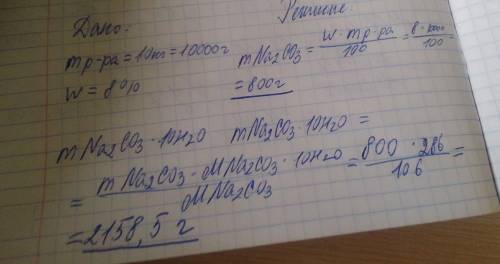 Дано: Решение:
mр-ра = 10кг = 10000г
mNa2CO3 = w · mр-ра / 100 = 8 · 10000 / 100 =
w = 8%
= 800г
mNa2CO3 · 10H2O mNa2CO3 · 10H2O =
= mNa2CO3 · MNa2CO3 · 10H2O / MNa2CO3 = 800 · 286 / 106 =
= 2158,5 г